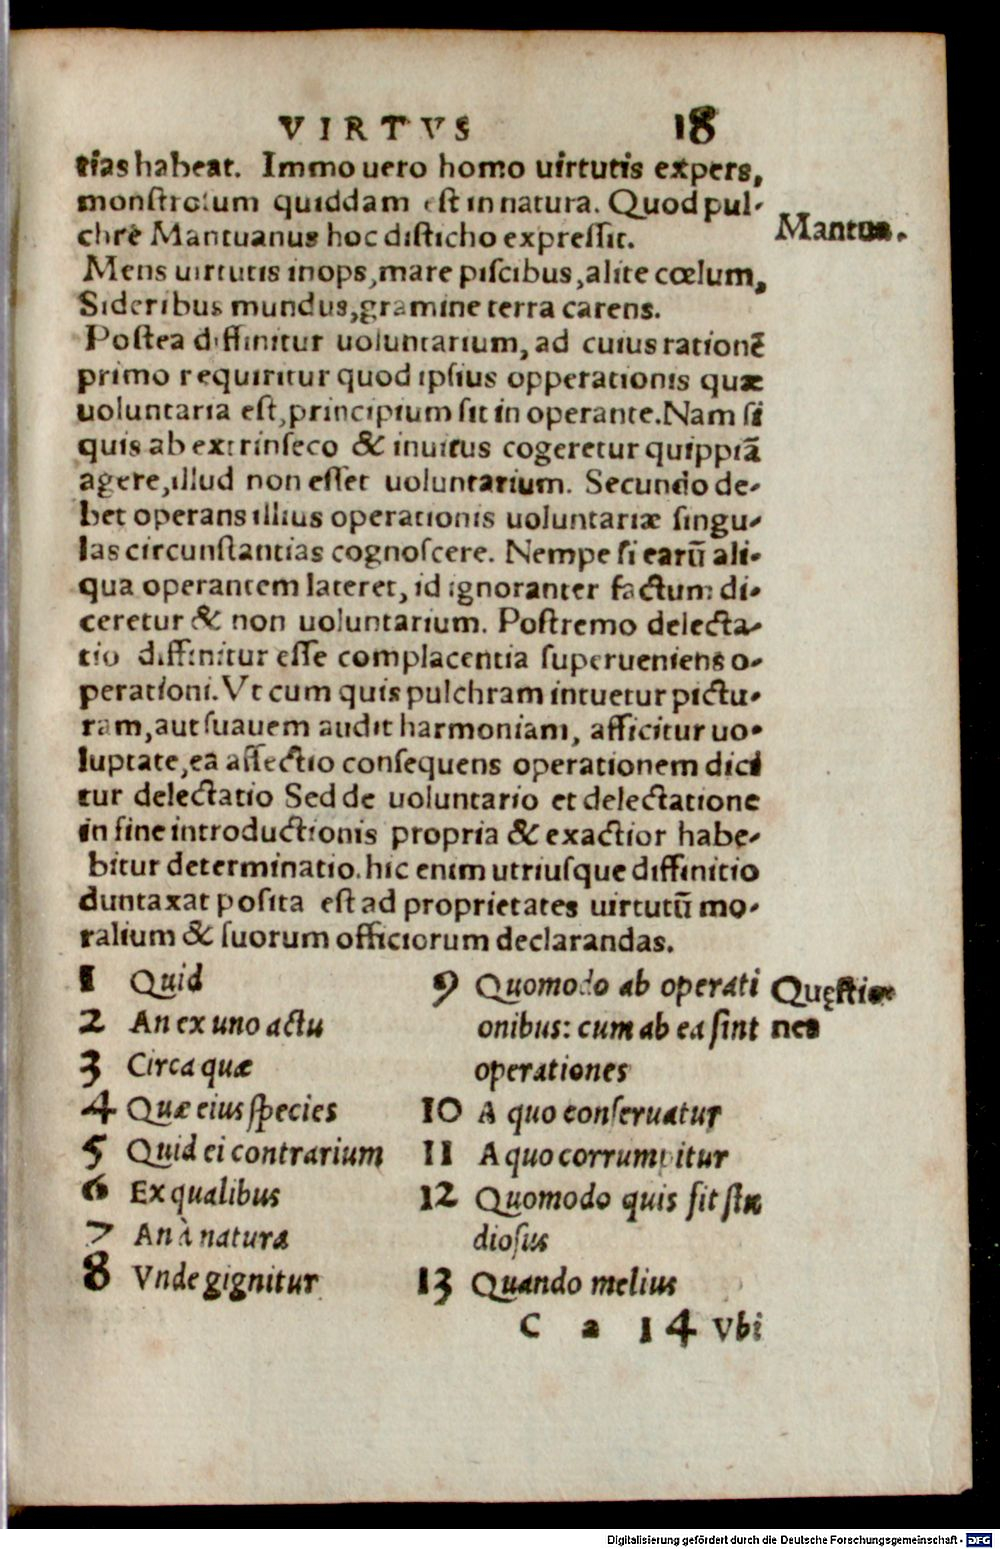 VIRTVS 18
tias habeat. Immo uero homo uirtutis expers,
monstrosum quiddam est in natura. Quod pul-
chrè Mantuanus hoc disticho expressit.
Mantua.
Mens uirtutis inops, mare piscibus, alite cœlum,
Sideribus mundus, gramine terra carens.
Postea diffinitur uoluntarium, ad cuius rationẽ
primo requiritur quod ipsius opperationis quæ
uoluntaria est, principium sit in operante. Nam si
quis ab extrinseco & inuitus cogeretur quippiã
agere, illud non esset uoluntarium. Secundo de-
bet operans illius operationis uoluntariæ singu-
las circunstantias cognoscere. Nempe si earũ ali-
qua operantem lateret, id ignoranter factum di-
ceretur & non uoluntarium. Postremo delecta-
tio diffinitur esse complacentia superueniens o-
perationi. Vt cum quis pulchram intuetur pictu-
ram, aut suauem audit harmoniam, afficitur uo-
luptate, ea affectio consequens operationem dici
tur delectatio Sed de uoluntario et delectatione
in fine introductionis propria & exactior habe-
bitur determinatio. hic enim utriusque diffinitio
duntaxat posita est ad proprietates uirtutũ mo-
ralium & suorum officiorum declarandas.
1 Quid
2 An ex uno actu
3 Circa quæ
4 Quæ eius species
5 Quid ei contrarium
6 Ex qualibus
7 An à natura
8 Vnde gignitur
9 Quomodo ab operati
onibus: cum ab ea sint
operationes
10 A quo conseruatur
11 A quo corrumpitur
12 Quomodo quis sit stu
diosus
13 Quando melius
Quęstio-
nes
C a 14 Vbi
Digitalisierung gefördert durch die Deutsche Forschungsgemeinschaft - DFG